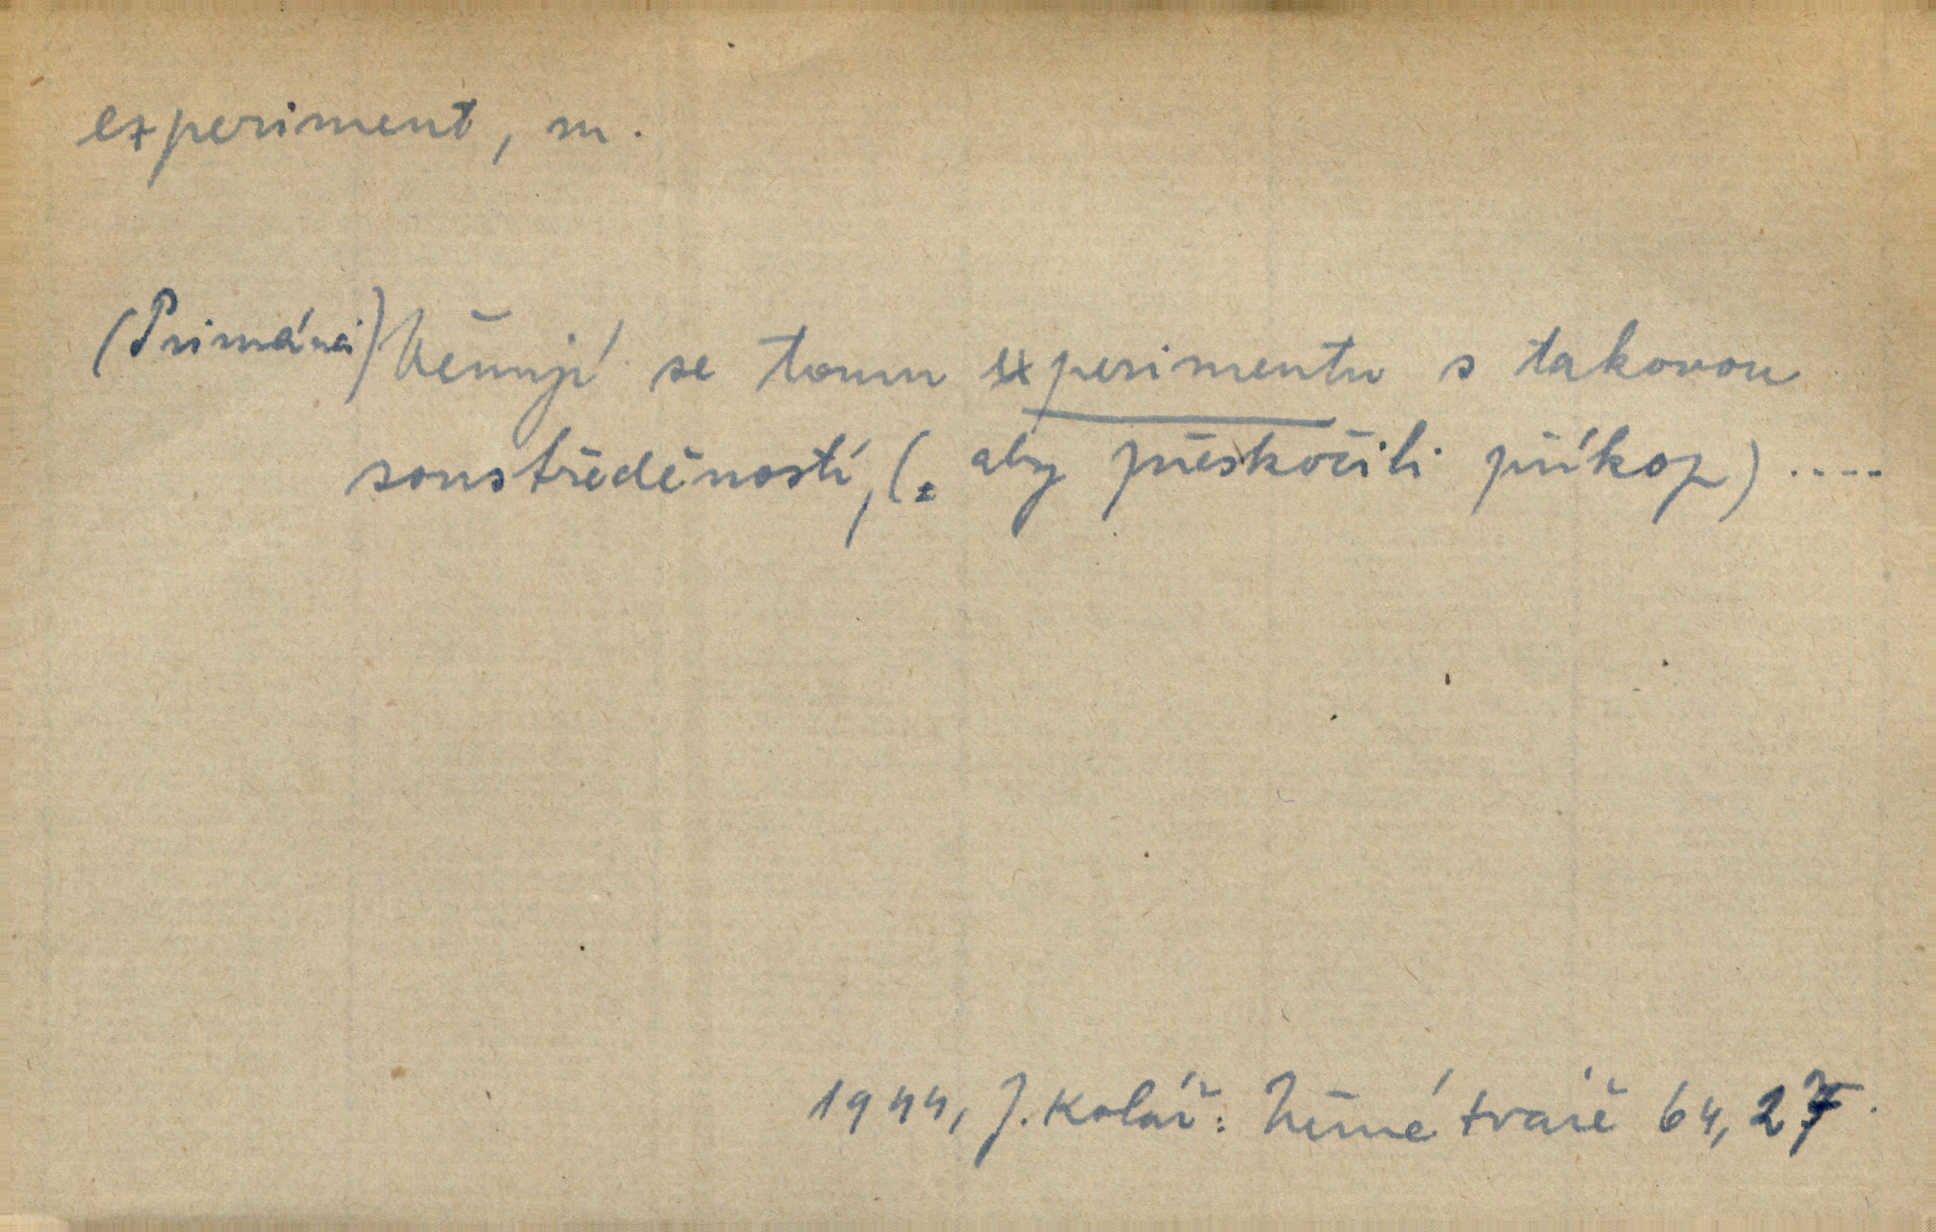 experiment, m.
(Primáni) Věnují se tomu experimentu s takovou
soustředěností, (= aby přeskočili příkop) ....
1944, J. Kolář: Věrné tváře 64, 27.